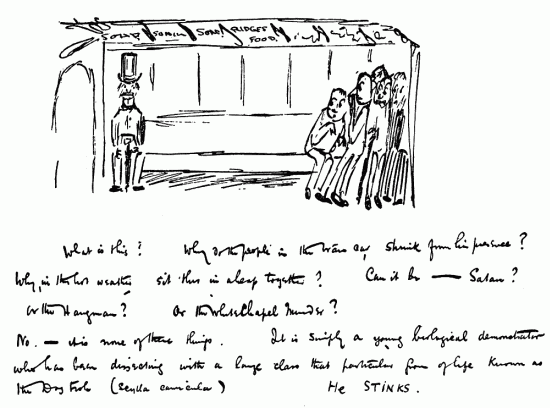 SOAP SOAP RIDGES
FOOD
What is this? Why do the people in the tram car shrink from his presence?
Why, in the hot weather sit thus in a heap together? Can it be — Satan?
Or the Hangman? Or the Whitechapel Murder?
No. — it is none of these things. It is simply a young biological demonstrator
who has been dissecting with a large class that particular form of life known as
the Dog Fish (Scylla canicula) He STINKS.